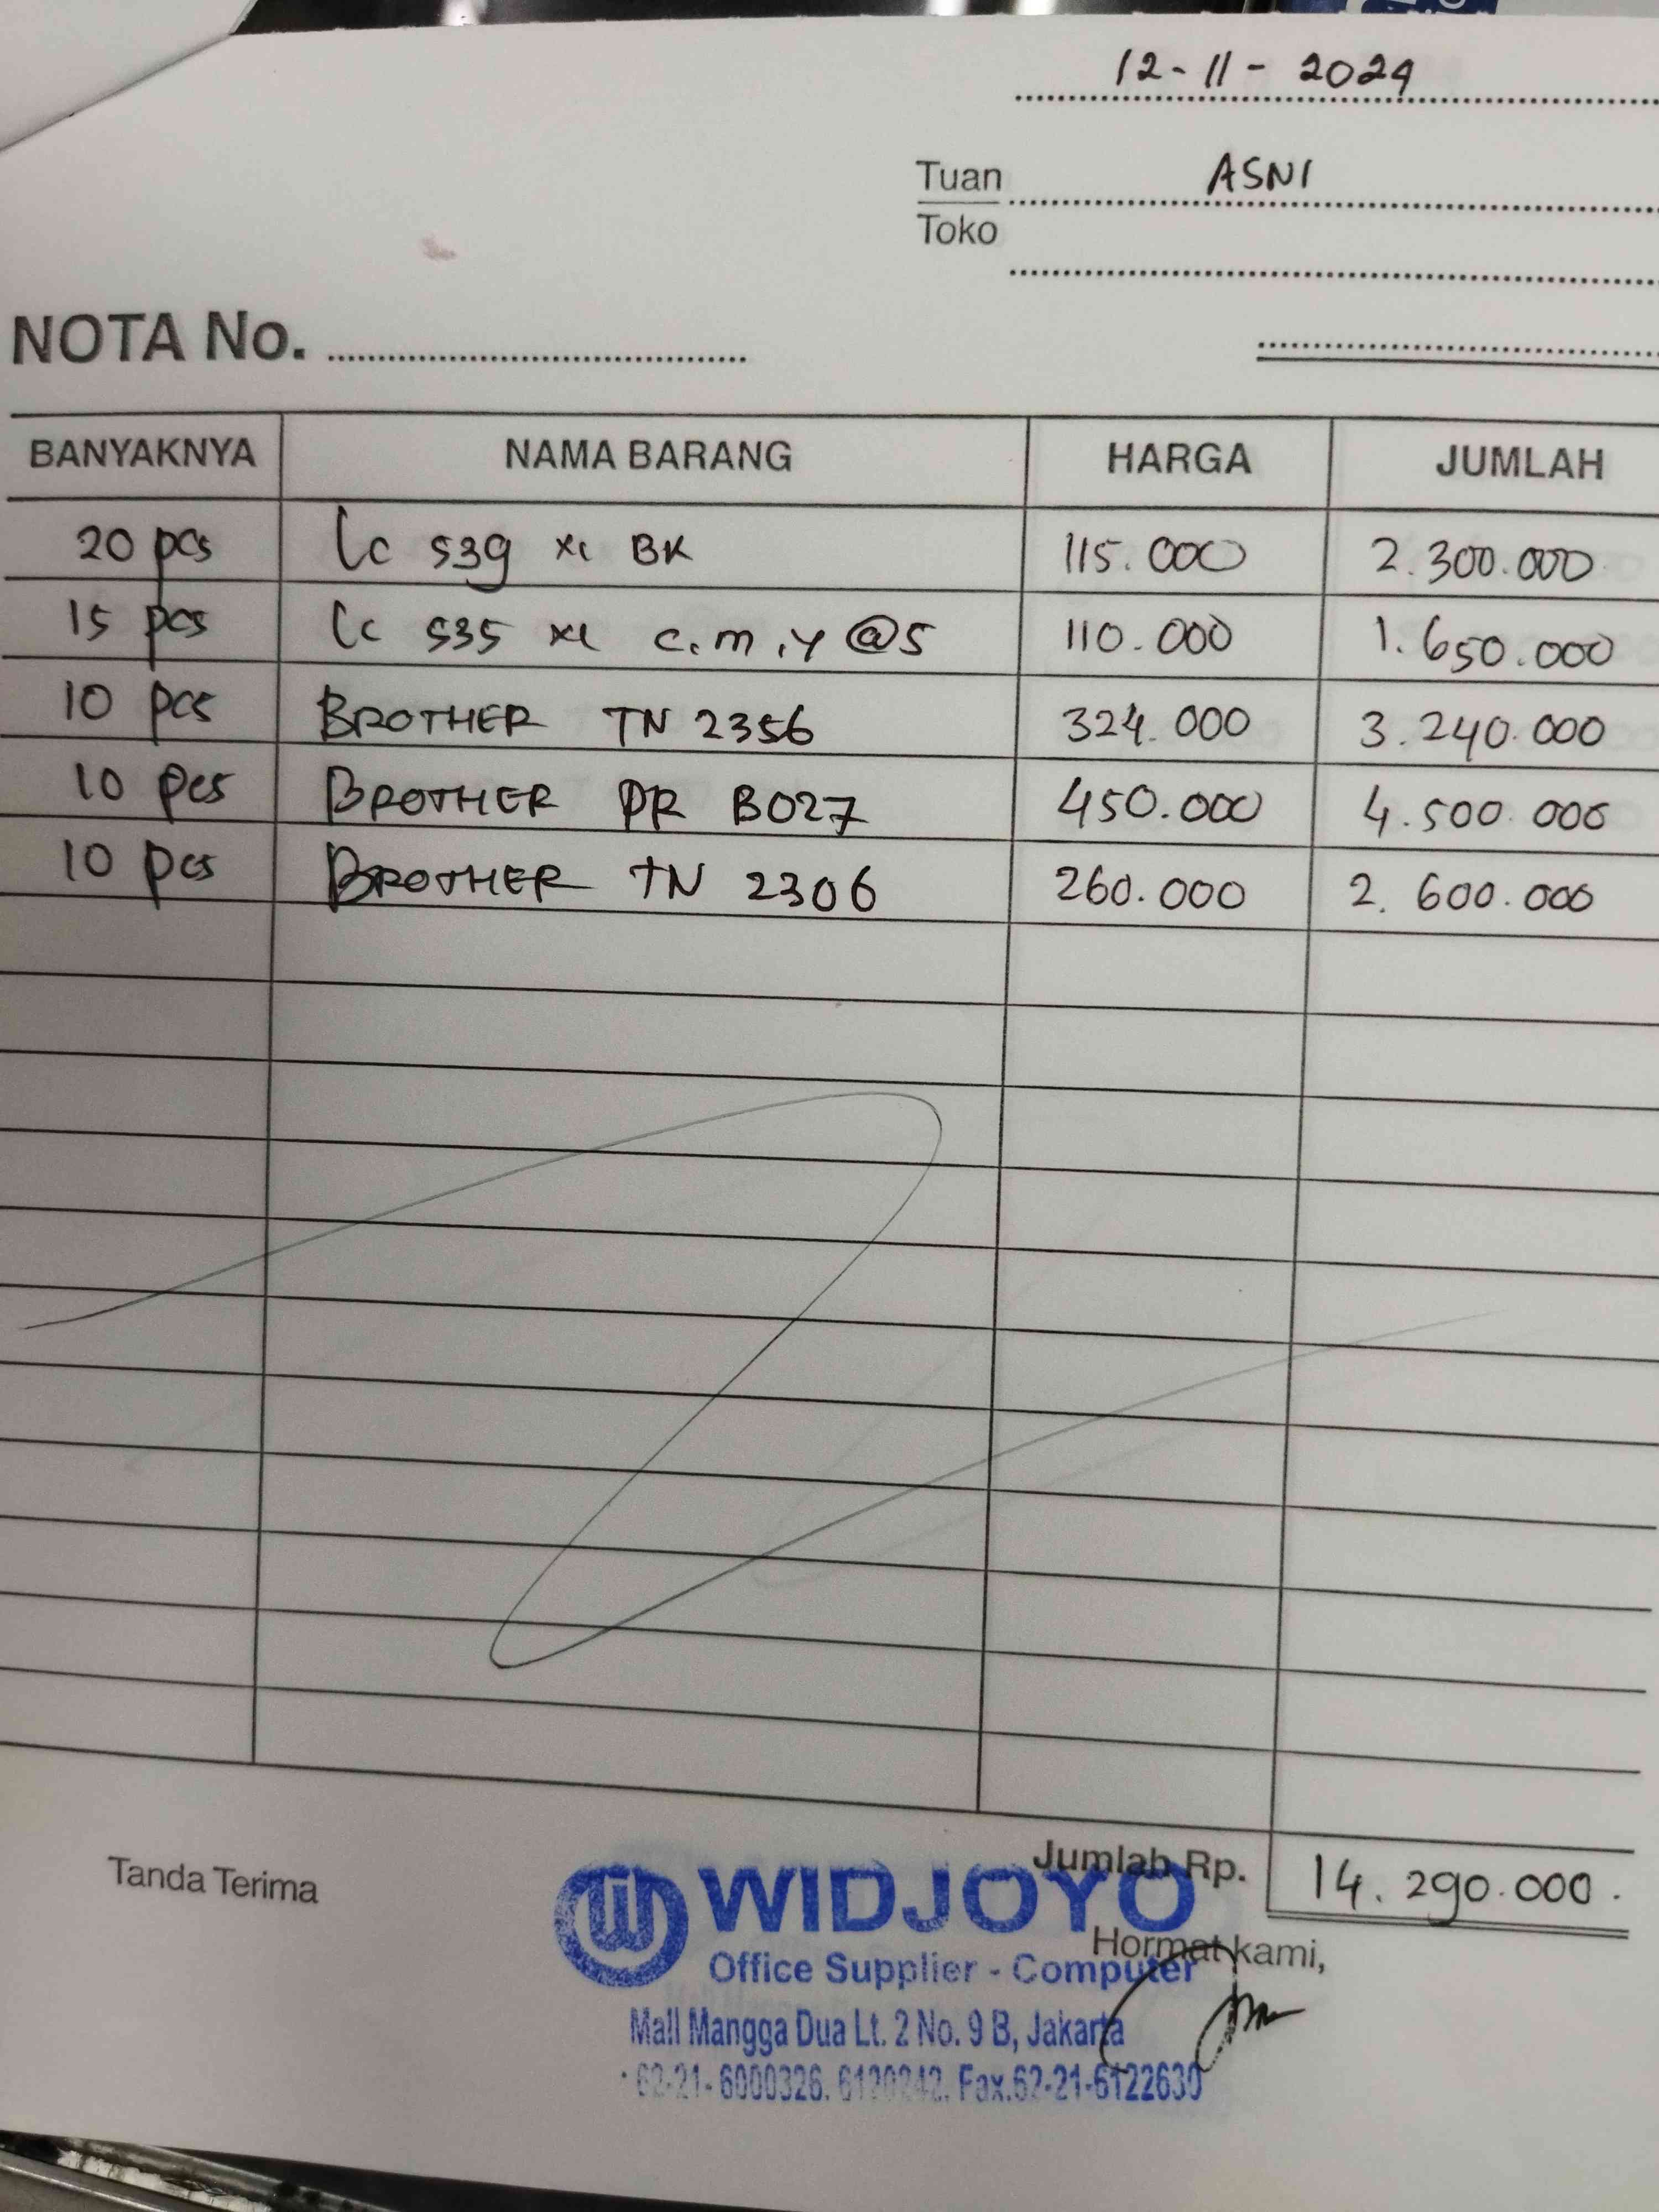 12-11-2024
Tuan ASNI
Toko
NOTA No.
BANYAKNYA NAMA BARANG HARGA JUMLAH
20 pcs Lc 539 XL BK 115.000 2.300.000
15 pcs Lc 535 XL C.M.Y @5 110.000 1.650.000
10 pcs BROTHER TN 2356 324.000 3.240.000
10 pcs BROTHER DR B027 450.000 4.500.000
10 pcs BROTHER TN 2306 260.000 2.600.000
Tanda Terima
Jumlah Rp. 14.290.000.
WIDJOYO
Hormat kami,
Office Supplier - Computer
Mall Mangga Dua Lt. 2 No. 9 B, Jakarta
62-21-6000326. Fax.62-21-6122630